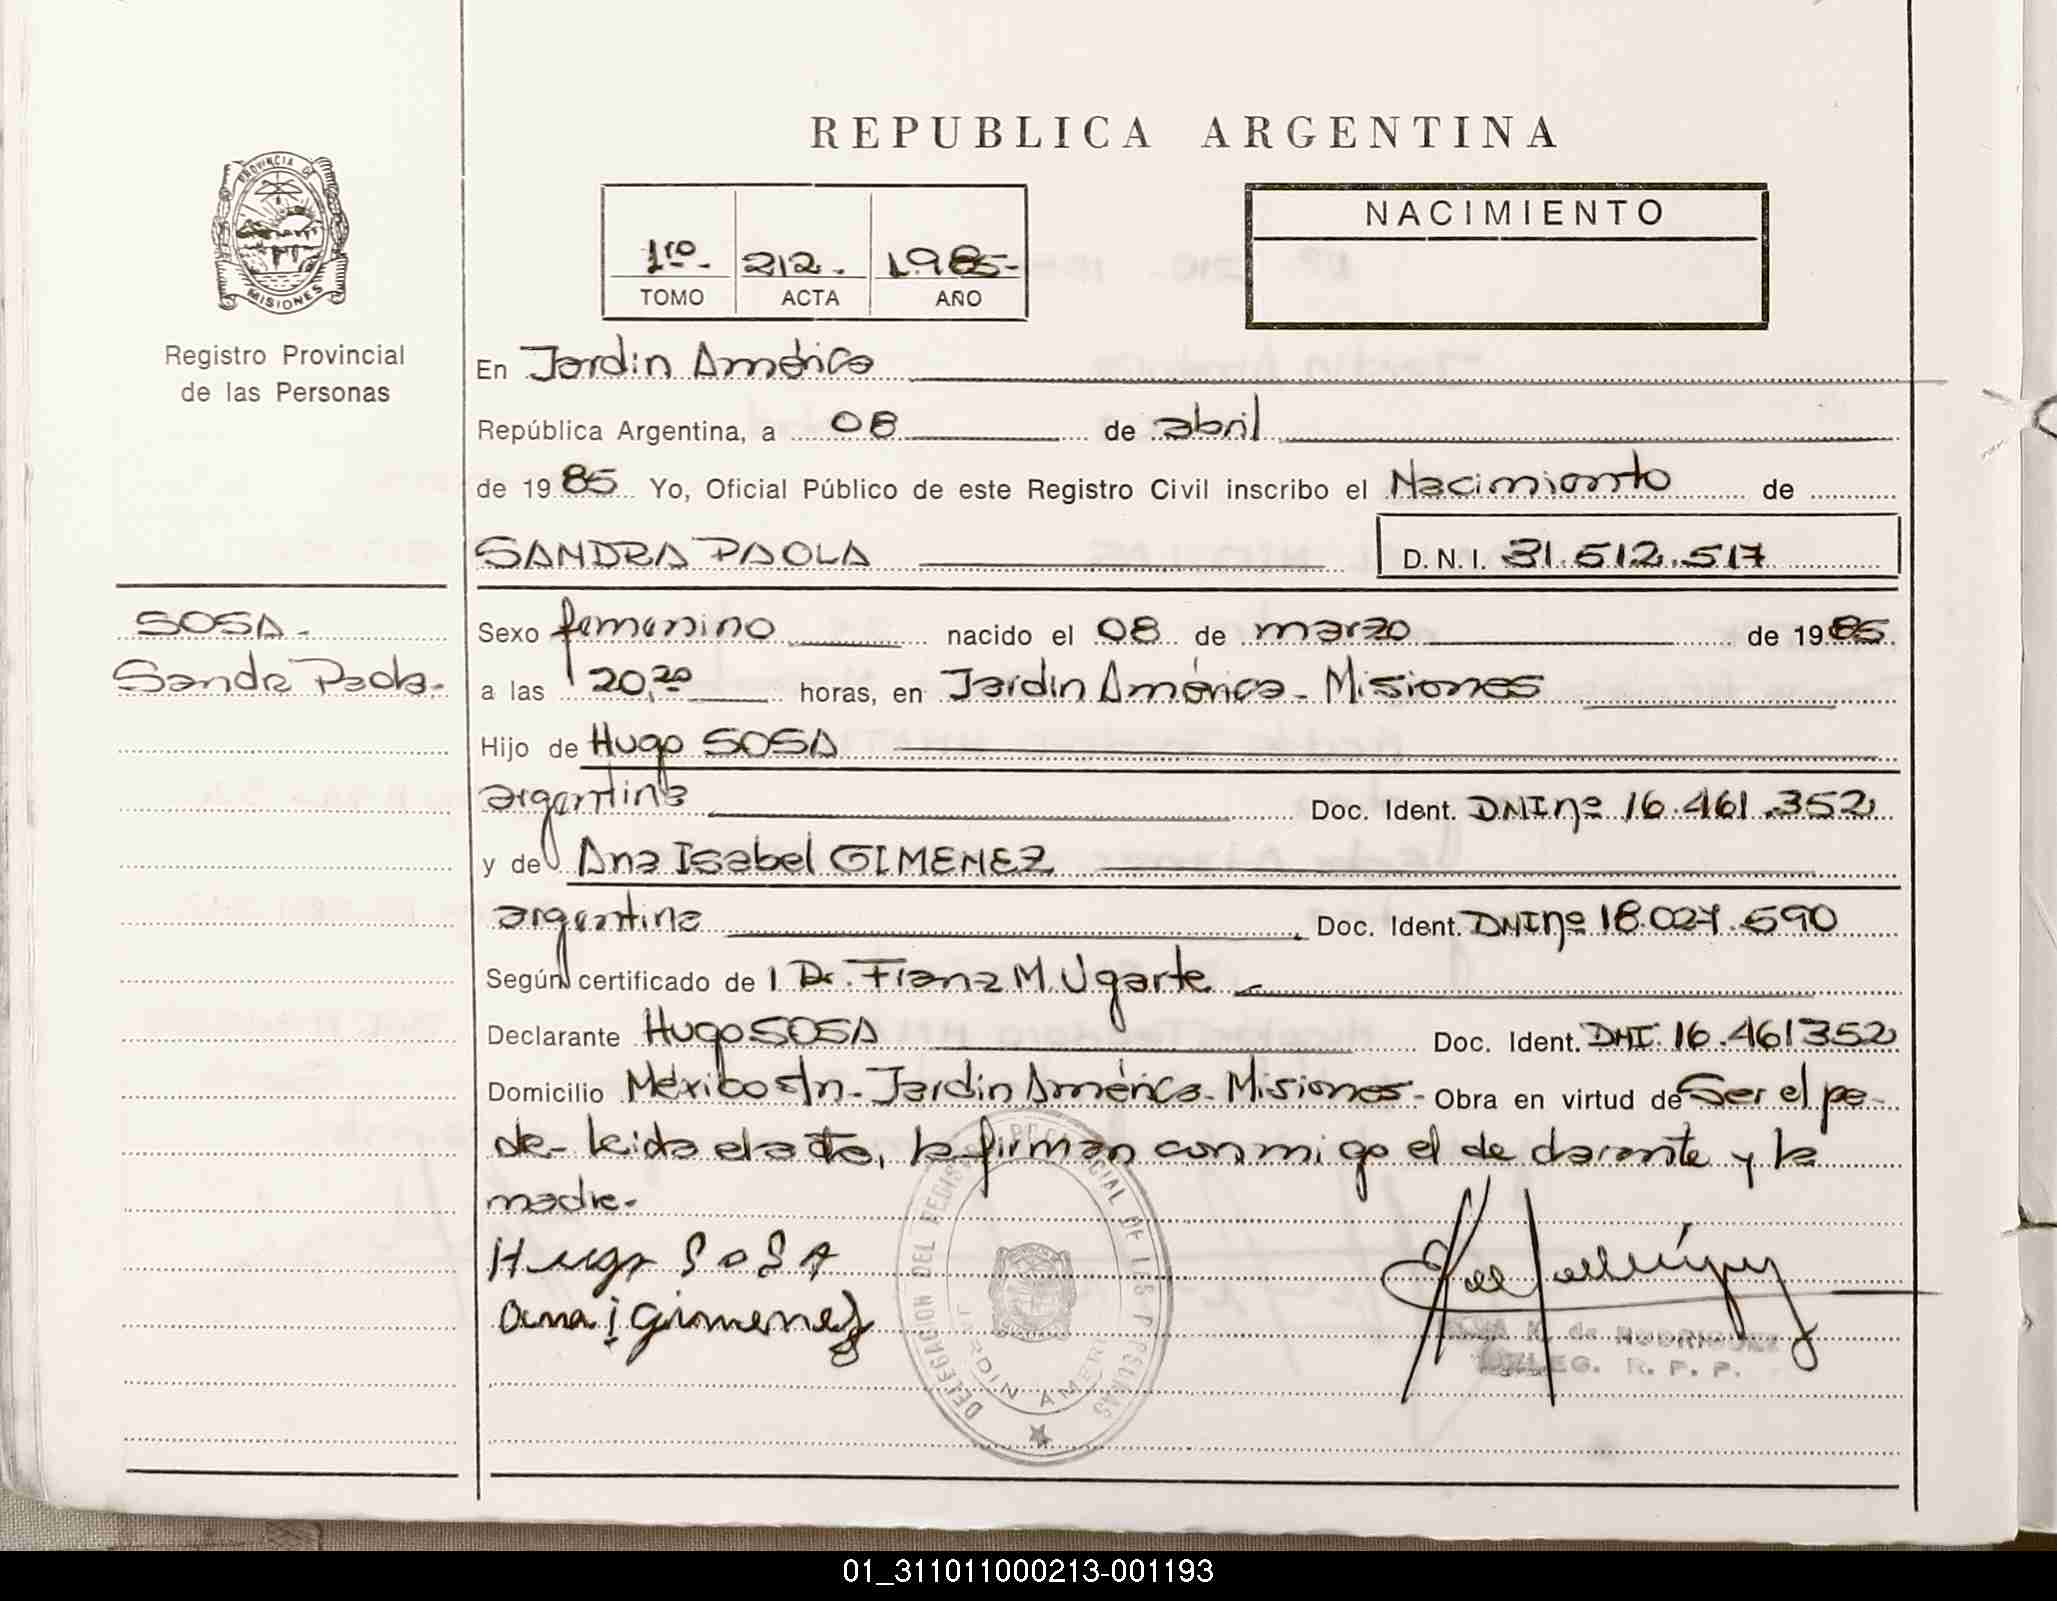 REPUBLICA ARGENTINA
PROVINCIA DE
MISIONES
Registro Provincial
de las Personas
1ro. 212. 1985-
TOMO ACTA AÑO
NACIMIENTO
En Jardín América
República Argentina, a 08 de abril
de 1985 Yo, Oficial Público de este Registro Civil inscribo el Nacimiento de
SANDRA PAOLA D.N.I. 31.512.517
SOSA-
Sandra Paola-
Sexo femenino nacido el 08 de marzo de 1985
a las 20,20 horas, en Jardín América - Misiones
Hijo de Hugo SOSA
argentina Doc. Ident. DNI nº 16.461.352
y de Ana Isabel GIMENEZ
argentina Doc. Ident. DNI nº 18.027.590
Según certificado de l Dr. Franz M. Ugarte
Declarante Hugo SOSA Doc. Ident. DNI. 16.461352
Domicilio México s/n- Jardín América- Misiones- Obra en virtud de Ser el pa-
dre- leida el acta, la firman conmigo el declarante y la
madre-
Hugo SOSA
Ana i Gimenez
DELEGACION DEL REGISTRO PROVINCIAL DE LAS PERSONAS
JARDIN AMERICA
K. de RODRIGUEZ
DELEG. R. P. P.
01_311011000213-001193